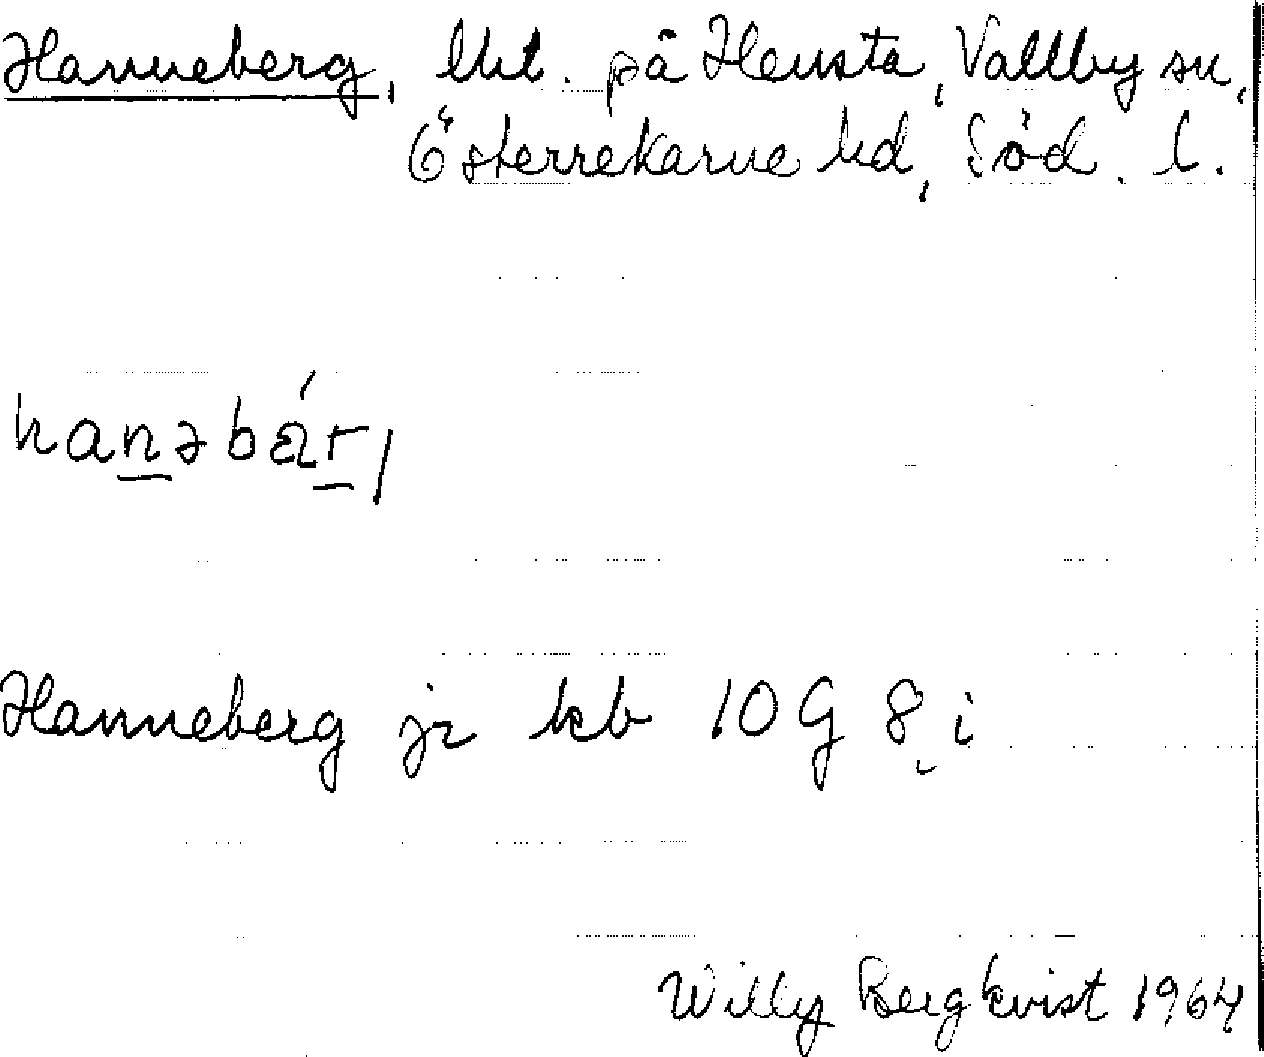 Hanneberg, lht. på Hensta, Vallby sn,
Österrekarne hd, Söd. l.
hanəbär,
Hanneberg jr kb 10 G 8 i
Willy Bergkvist 1964